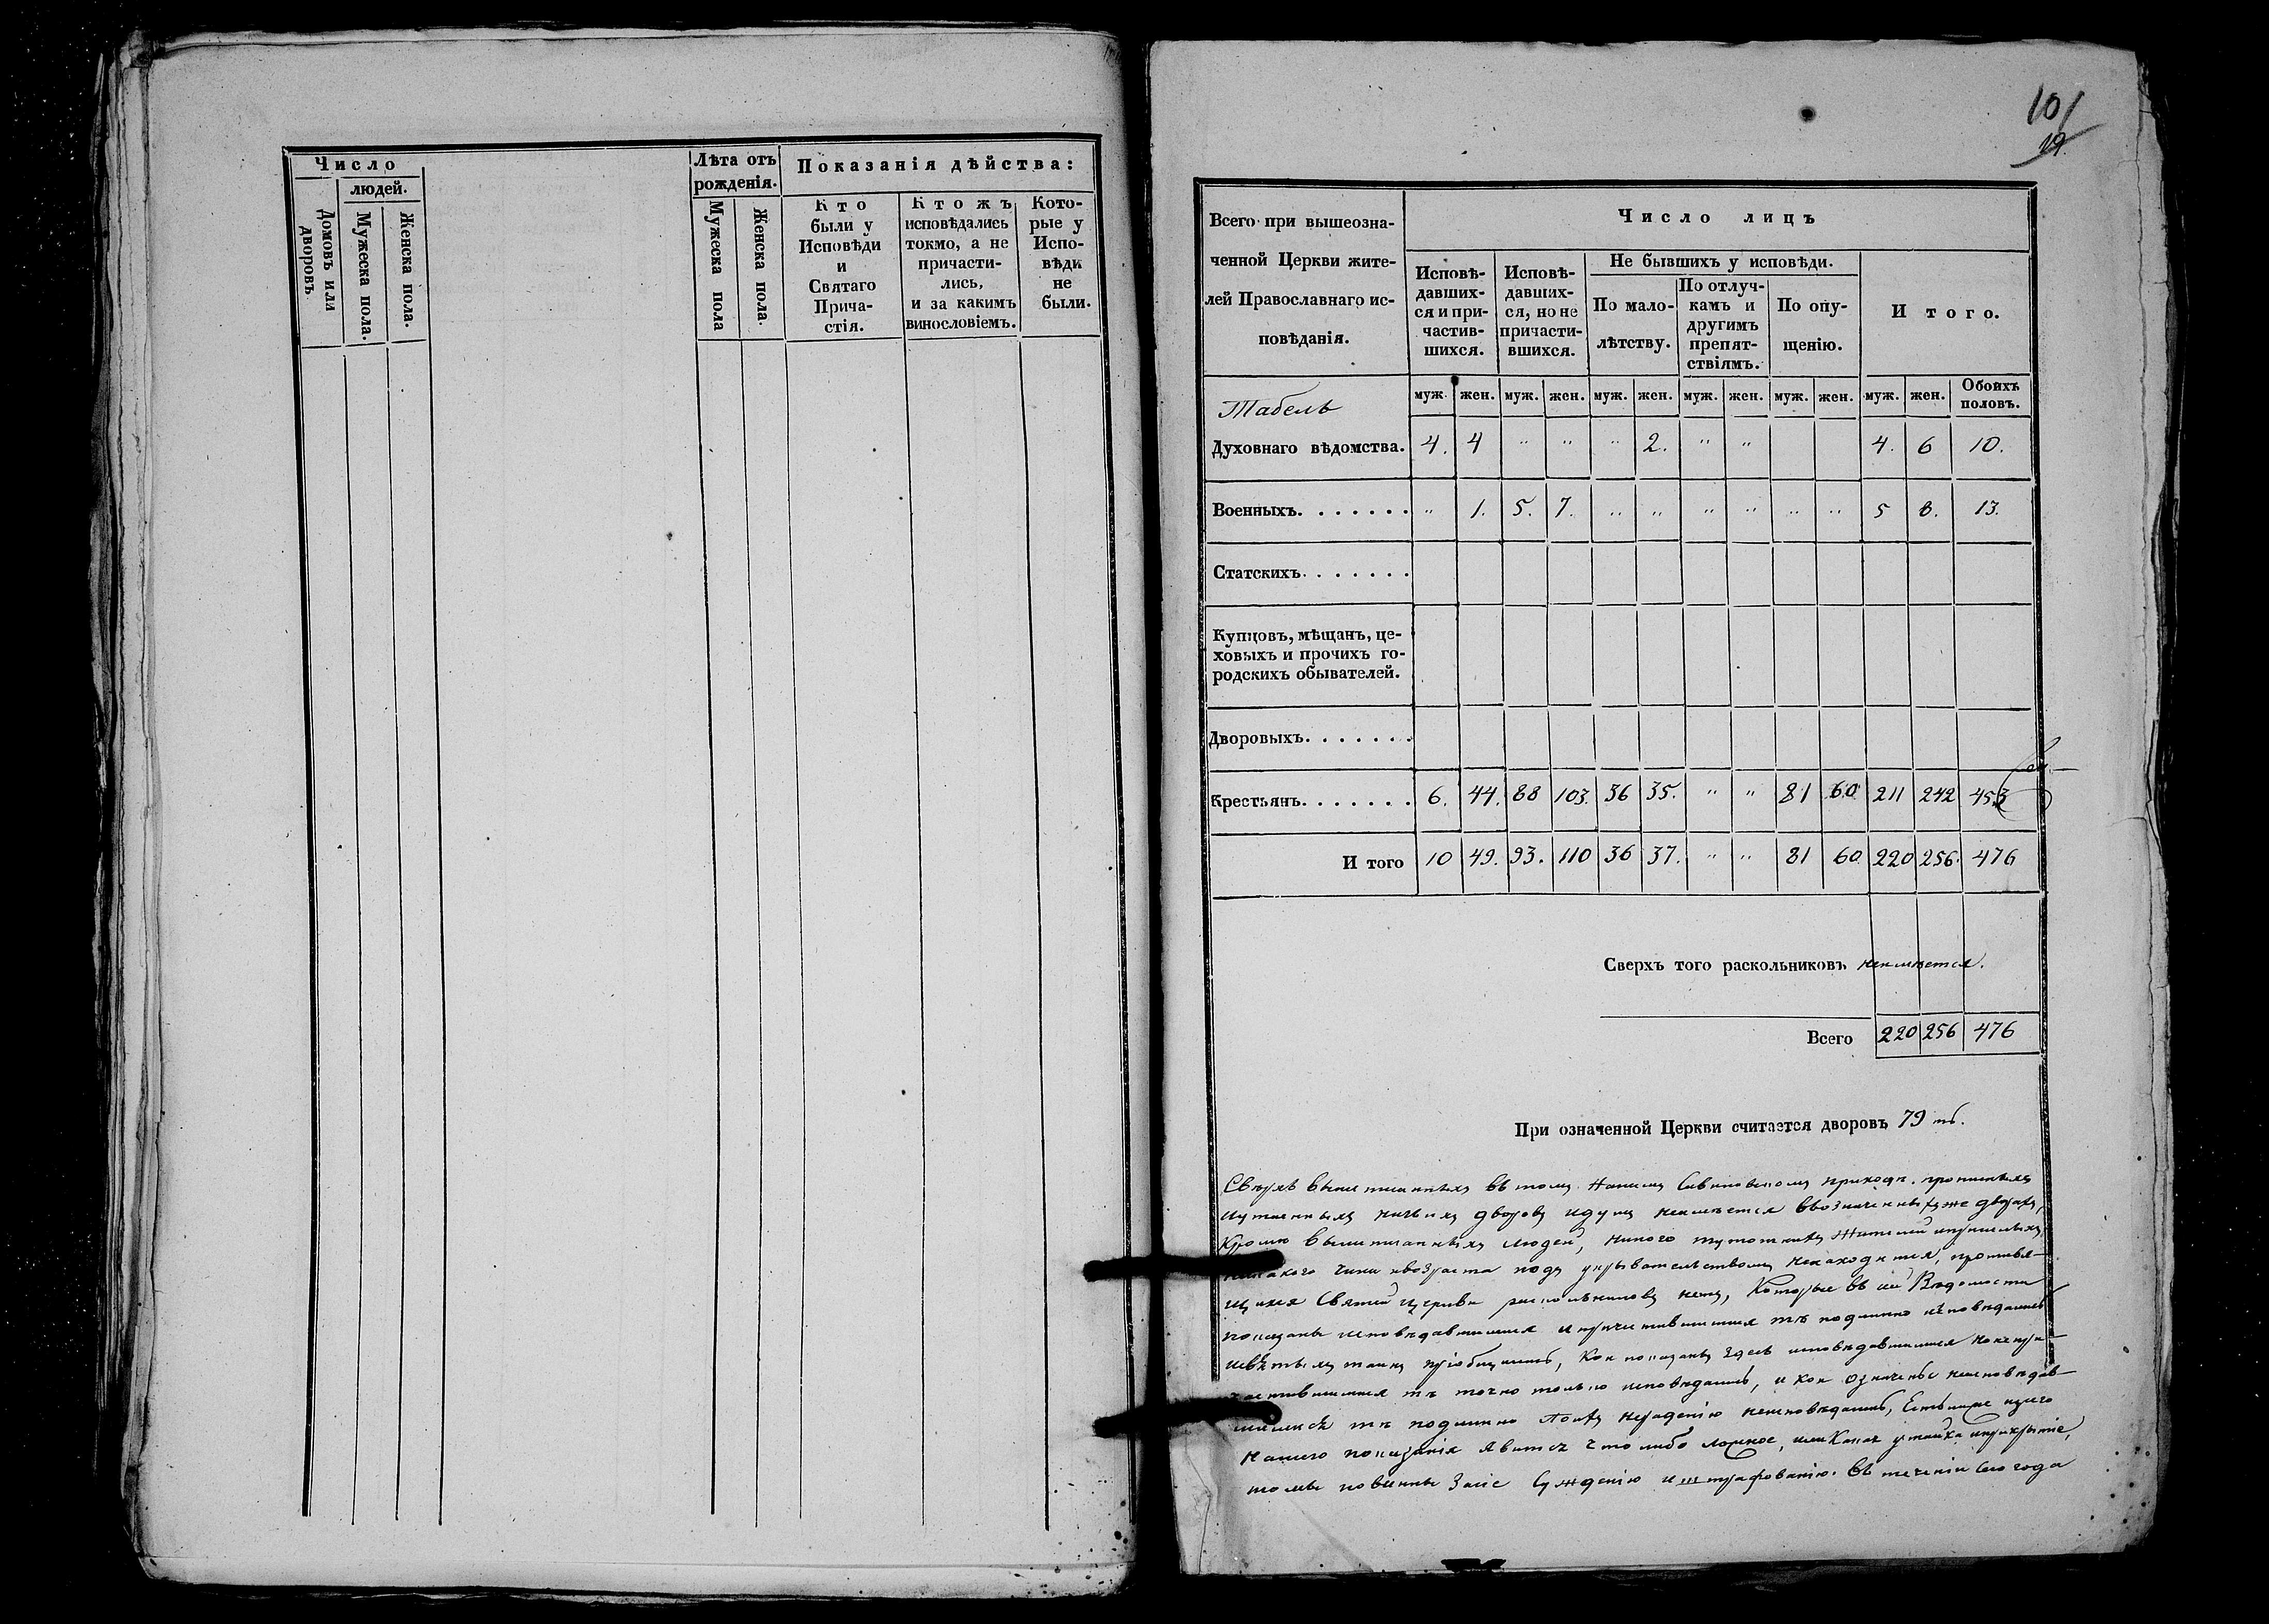 Число
людей.
Домовъ или дворовъ
Мужеска пола.
Женска пола.
Лѣта отъ рожденія.
Мужеска пола
Женска пола.
Показанія дѣйства:
Кто
были у
Исповѣди
и
Святаго
Прича-
стія.
Ктожъ
исповѣдались
токмо, а не
причасти-
лись,
и за какимъ
винословіемъ.
Кото-
рые у
Испо-
вѣди
не
были.
101
19.
Всего при вышеозна-
ченной Церкви жите-
лей Православнаго ис-
повѣданія.
Число лицъ
Исповѣ-
давших-
ся и при-
частив-
шихся.
Исповѣ-
давших-
ся, но не
причасти-
вшихся.
Не бывшихъ у исповѣди.
По мало-
лѣтству.
По отлуч-
камъ и
другимъ
препят-
ствіямъ.
По опу-
щенію.
И того.
муж. жен. муж. жен. муж. жен. муж. жен. муж. жен. муж. жен. Обоихъ половъ.
Табель
Духовнаго вѣдомства. 4. 4 " " " 2. " " 4. 6 10.
Военныхъ. . . . . . . " 1. 5. 7. " " " " " " 5 8. 13.
Статскихъ. . . . . . .
Купцовъ, мѣщанъ, це-
ховыхъ и прочихъ го-
родскихъ обывателей.
Дворовыхъ. . . . . . .
Крестьянъ. . . . . . . 6. 44. 88 103. 36 35. " " 81 60. 211 242 453
И того 10 49. 93. 110 36 37. " " 81 60. 220 256. 476
Сверхъ того раскольниковъ неимѣется.
Всего 220 256 476
При означенной Церкви считается дворовъ 79 ть.
Сверхъ вышеписанныхъ въ томъ нашемъ приходѣ
дворовъ и душъ неимѣется
Кромѣ вышеписанныхъ людей, никого
чина и возраста подъ укрывательствомъ ненаходится, противя-
щихся Святой Церкви раскольниковъ нетъ, Которые въ сей Вѣдомости
показаны исповѣдавшимися и причастившимися тѣ подлинно исповѣдались
таинъ пріобщились, Кои показаны здесь исповѣдавшимися но непри-
частившимися тѣ точно только исповѣдались, и кои означены неисповѣдав-
шимися тѣ подлинно по нераденію неисповѣдались, Естьлиже изъ сего
нашего показанія явится что либо ложное, или Какая утайка и прикрытіе,
то мы повинны За сіе Сужденію и штрафованію. Въ теченіи сего года